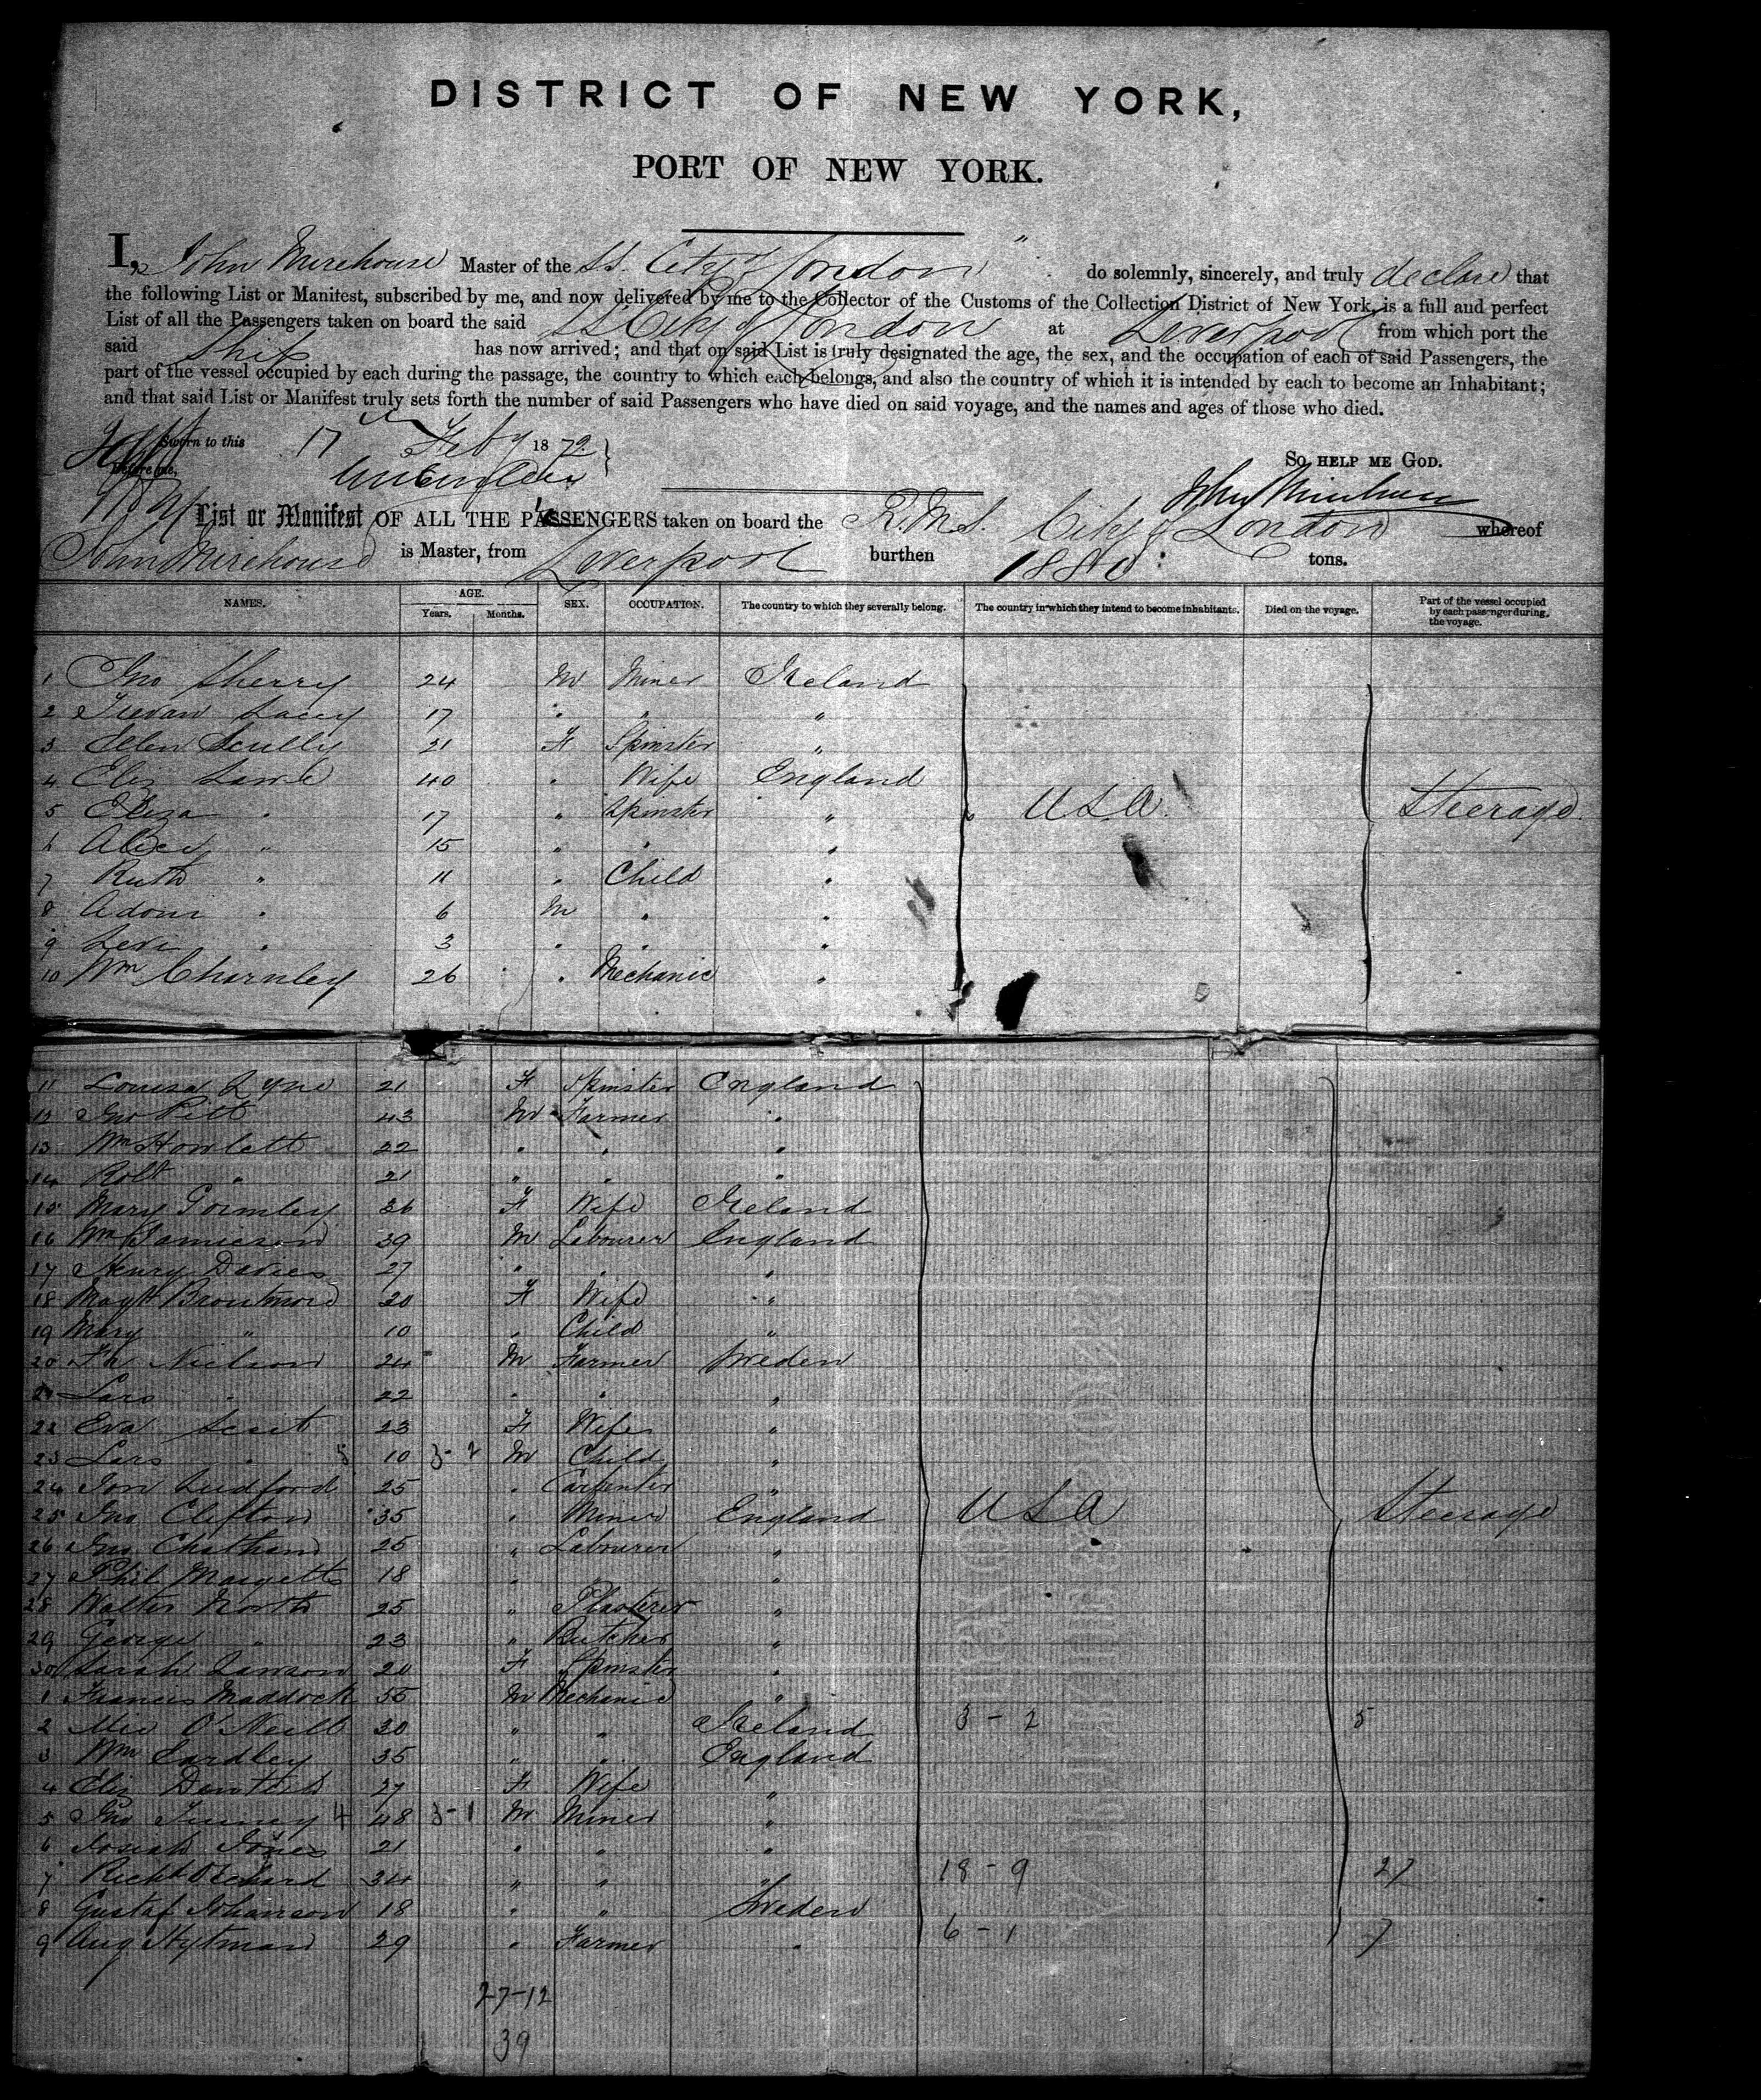 DISTRICT OF NEW YORK,
PORT OF NEW YORK.
I, John Mirehouse Master of the S.S. City of London do solemnly, sincerely, and truly declare that
the following List or Manifest, subscribed by me, and now delivered by me to the Collector of the Customs of the Collection District of New York, is a full and perfect
List of all the Passengers taken on board the said SS City of London at Liverpool from which port the
said Ship has now arrived; and that on said List is truly designated the age, the sex, and the occupation of each of said Passengers, the
part of the vessel occupied by each during the passage, the country to which each belongs, and also the country of which it is intended by each to become an Inhabitant;
and that said List or Manifest truly sets forth the number of said Passengers who have died on said voyage, and the names and ages of those who died.
Sworn to this 17 Feby 1872
Before me,
So help me God.
John Mirehouse
List or Manifest OF ALL THE PASSENGERS taken on board the R.M.S. City of London whereof
John Mirehouse is Master, from Liverpool burthen 1880 tons.
NAMES. AGE. Years. Months. SEX. OCCUPATION. The country to which they severally belong. The country in which they intend to become inhabitants. Died on the voyage. Part of the vessel occupied by each passenger during the voyage.
1 Jno Sherry 24 M Miner Ireland
2 Lacey 17 " " "
3 Ellen Scully 21 F Spinster "
4 Eliz 40 " Wife England
5 Eliza " 17 " Spinster " USA. Steerage.
6 Alice " 15 " " "
7 Ruth " 11 " Child "
8 " 6 M " "
9 Levi " 3 " " "
10 Wm Charnley 26 " Mechanic "
11 Louisa Lyne 21 F Spinster England
12 Jno Pitt 43 M Farmer "
13 Wm Howlett 22 " " "
14 Robt " 21 " " "
15 Mary Gormley 36 F Wife Ireland
16 Wm Jamieson 39 M Labourer England
17 Henry Davies 27 " " "
18 Magt 20 F Wife "
19 Mary " 10 " Child "
20 Nielson 24 M Farmer Sweden
21 Lars " 22 " " "
22 Eva 23 F Wife "
23 Lars " 5 10 3-2 M Child "
24 Jon Ludford 25 " Carpenter "
25 Jno Clifton 35 " Miner England USA Steerage
26 Jno Chatham 25 " Labourer "
27 Phil Margetts 18 " " "
28 Walter North 25 " Plasterer "
29 George " 23 " Butcher "
30 Sarah Lawson 20 F Spinster "
1 Francis Maddock 35 M Mechanic "
2 Mic O'Neill 30 " " Ireland 3-2 5
3 Wm Eardley 35 " " England
4 Eliz 27 F Wife "
5 Jno 4 48 3-1 M Miner "
6 Josiah Jones 21 " " "
7 Richd Orchard 34 " " " 18-9 27
8 Gustaf Johanson 18 " " Sweden
9 Aug Hytman 29 " Farmer " 6-1 7
27-12
39